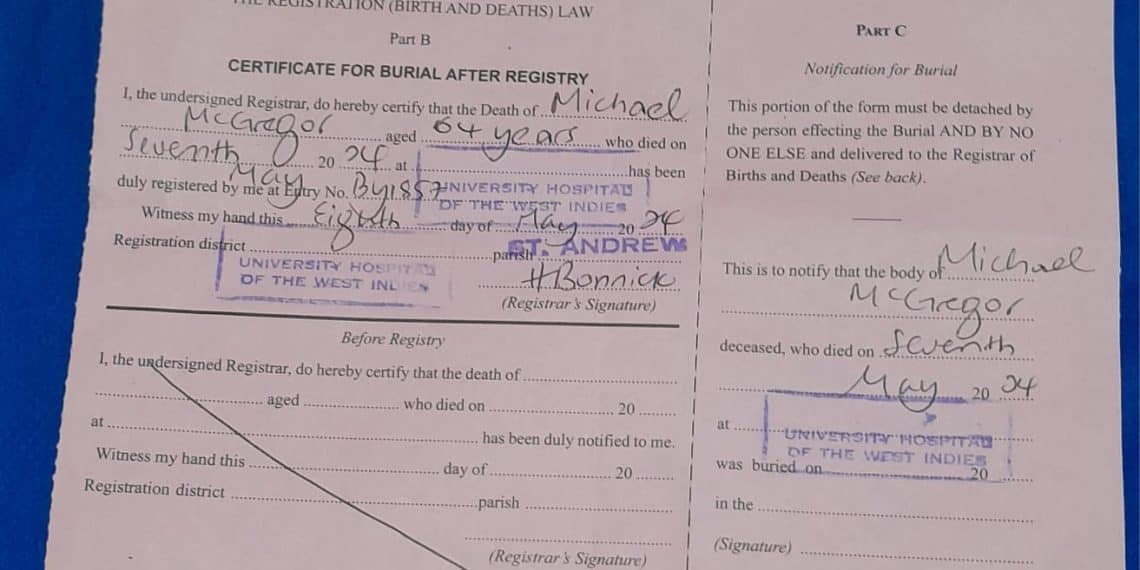 THE REGISTRATION (BIRTH AND DEATHS) LAW
Part B
CERTIFICATE FOR BURIAL AFTER REGISTRY
I, the undersigned Registrar, do hereby certify that the Death of Michael
McGregor aged 64 years who died on
Seventh May 20 24 at has been
duly registered by me at Entry No. BY1857
UNIVERSITY HOSPITAL
OF THE WEST INDIES
Witness my hand this Eighth day of May 20 24
Registration district parish ST. ANDREW
UNIVERSITY HOSPITAL
OF THE WEST INDIES
H Bonnick
(Registrar's Signature)
Before Registry
I, the undersigned Registrar, do hereby certify that the death of
aged who died on 20
at has been duly notified to me.
Witness my hand this day of 20
Registration district parish
(Registrar's Signature)
PART C
Notification for Burial
This portion of the form must be detached by
the person effecting the Burial AND BY NO
ONE ELSE and delivered to the Registrar of
Births and Deaths (See back).
This is to notify that the body of Michael
McGregor
deceased, who died on Seventh
May 20 24
at UNIVERSITY HOSPITAL
OF THE WEST INDIES
was buried on 20
in the
(Signature)